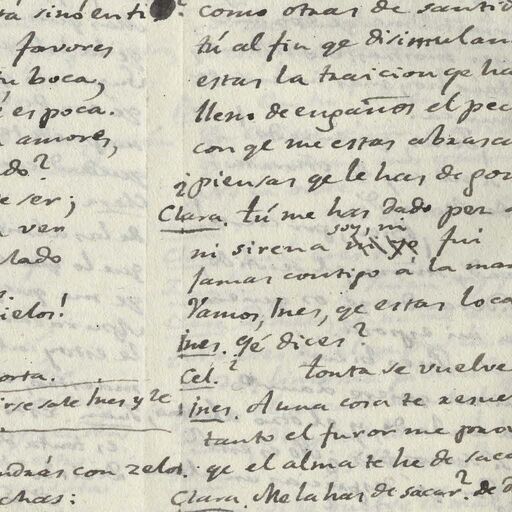 sino en ti?
favores
tu boca,
es poca.
amores,
do?
ser;
ver
lado
ielos!
orta.
irse sale Ines y
ndrás con zelos.
chas:
como otras de
tú al fin qe disimulan
estas la traicion qe ha
lleno de engaños el pec
con qe me estas abrasa
¿piensas qe le has de goz
Clara. tú me has dado por
ni sirena soy, ni fui
jamas contigo á la mar
Vamos, Ines, qe estas loca
Ines. qé dices?
Cel.? tonta se vuelve
Ines. A una cosa te resue
tanto el furor me provo
qe el alma te he de saca
Clara. Me la has de sacar? de